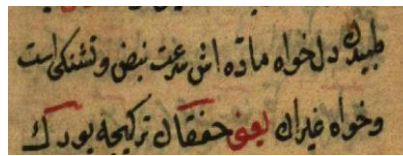 طبیدن دل خواه ماده اش سرعت نبض و تشنکی است
و خواه غیران یعنی خفقان ترکیجه یورک